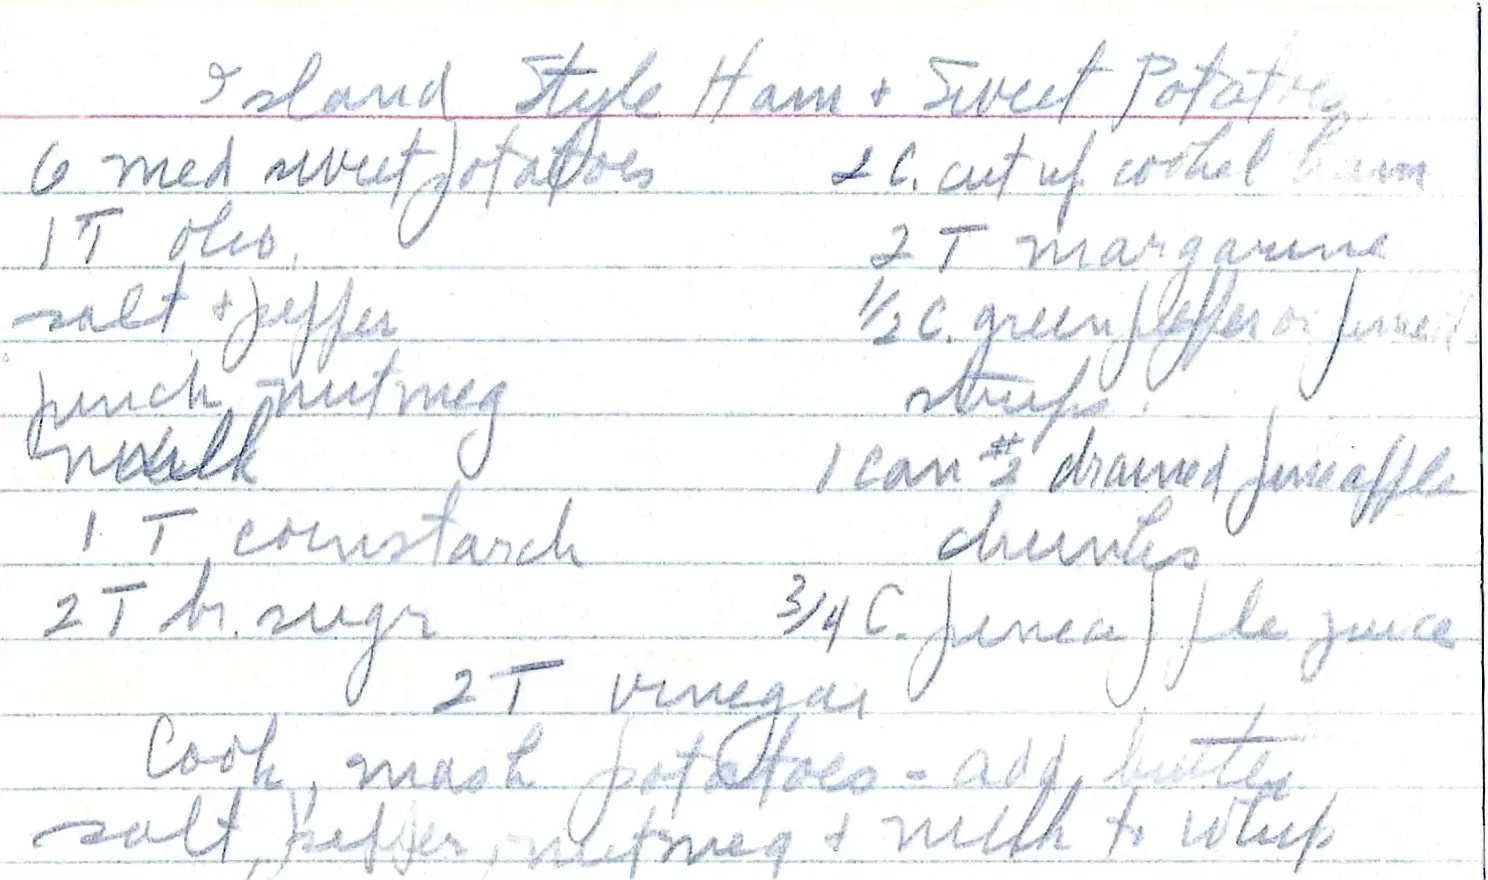 Island Style Ham + Sweet Potatoes
6 med sweet potatoes
1 T oleo.
salt + pepper
pinch nutmeg
milk
1 T cornstarch
2 T br. sugr
2 C. cut up cooked ham
2 T margarine
1/2 C. green pepper or
strips.
1 can #2 drained pineapple
chunks
3/4 C. pineapple juice
2 T vinegar
Cook, mash potatoes - add butter
salt, pepper, nutmeg + milk to whip